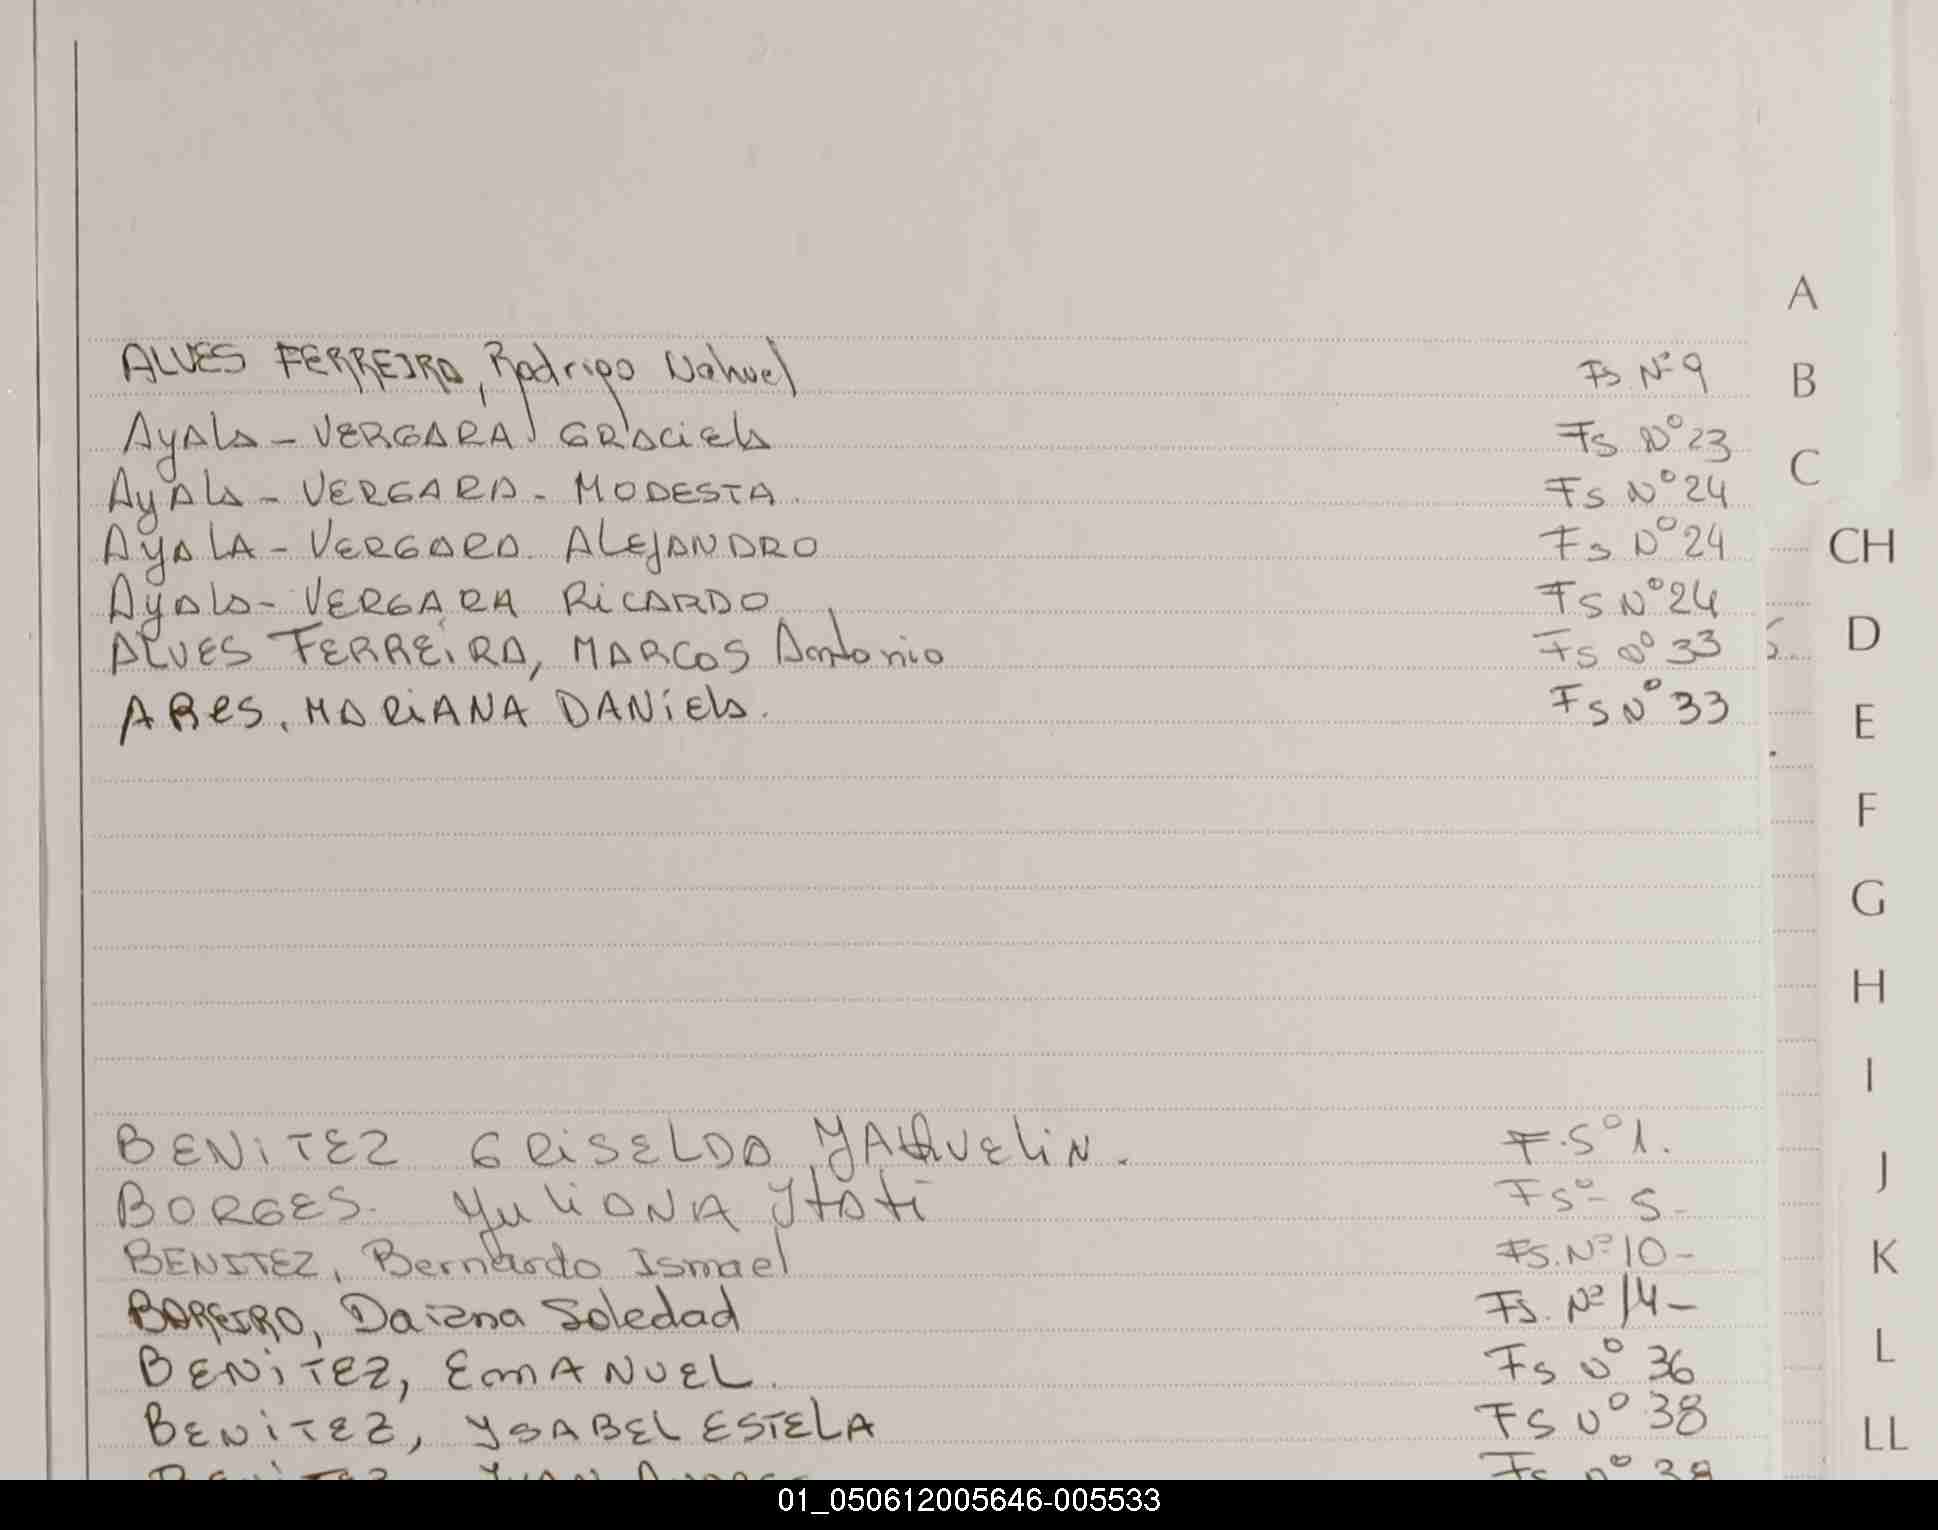 ALVES FERREIRA, Rodrigo Nahuel Fs Nº 9
AyAlA - VERGARA GRACiElA Fs Nº 23
AyAlA - VERGARA - MODESTA. Fs Nº 24
AyALA - VERGARA. ALEJANDRO Fs Nº 24
AyAlA - VERGARA RiCARDO Fs Nº 24
ALVES FERREiRA, MARCOS Antonio Fs Nº 33
ARes, MARiANA DANiElA. Fs Nº 33
BENiTEZ GRiSELDA YAQUELiN. F.Sº 1.
BORGES. YuLiANA Ytati Fsº- 5-
BENITEZ, Bernardo Ismael Fs. Nº 10-
BAREIRO, Daiana Soledad Fs. Nº 14-
BENiTEZ, EmANUEL. Fs Nº 36
BENiTEZ, YSABEL ESTELA FS Nº 38
A
B
C
CH
D
E
F
G
H
I
J
K
L
LL
01_050612005646-005533